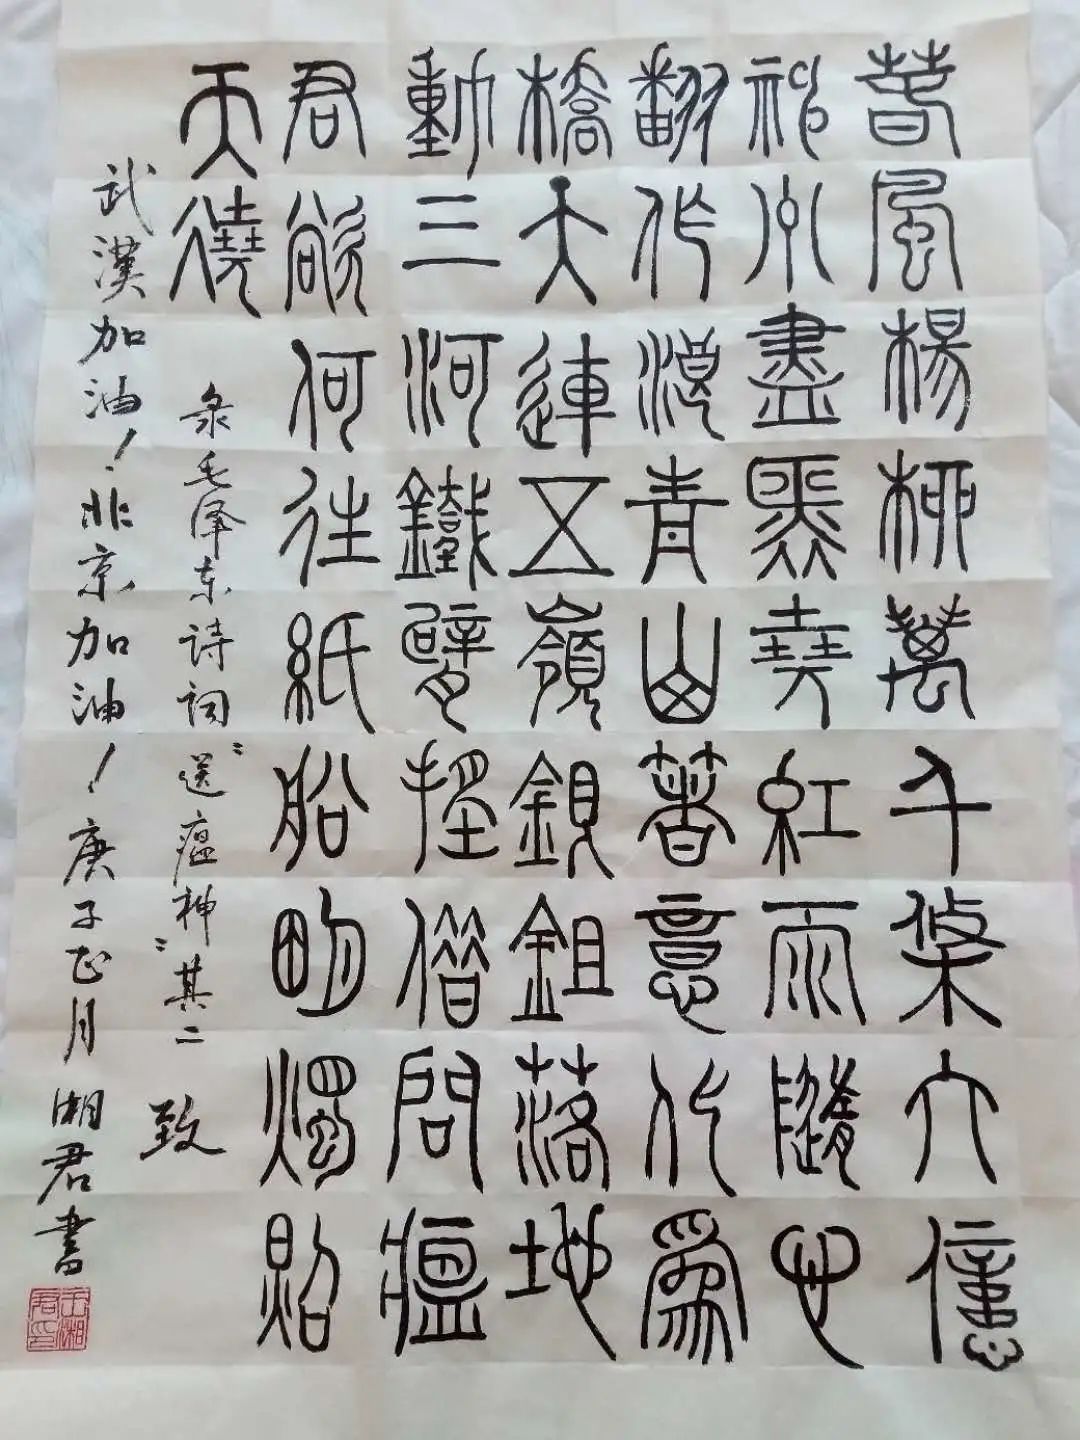 春風楊柳萬千條六億
神州盡舜堯紅雨隨心
翻作浪青山著意化爲
橋天連五嶺銀鉏落地
動三河鐵臂搖借問瘟
君欲何往紙船明燭照
天燒
录毛泽东诗词"送瘟神"其二 致
武漢加油！北京加油！庚子正月 湘君書
王湘君印